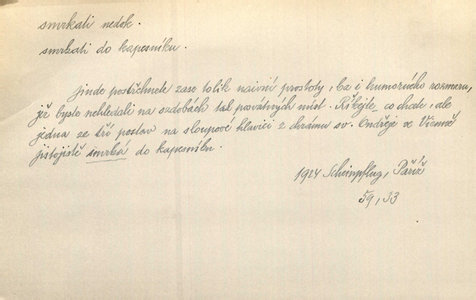 smrkati nedok.
smrkati do kapesníku.
Jinde postřehnete zase tolik naivní prostoty, ba i humorného rozmaru,
jež byste nehledali na ozdobách tak posvátných míst. Říkejte, co chcete, ale
jedna ze tří postav na sloupové hlavici z chrámu sv. Ondřeje ve Vienně
jistojistě smrká do kapesníku.
1924 Scheinpflug, Paříž
59, 33